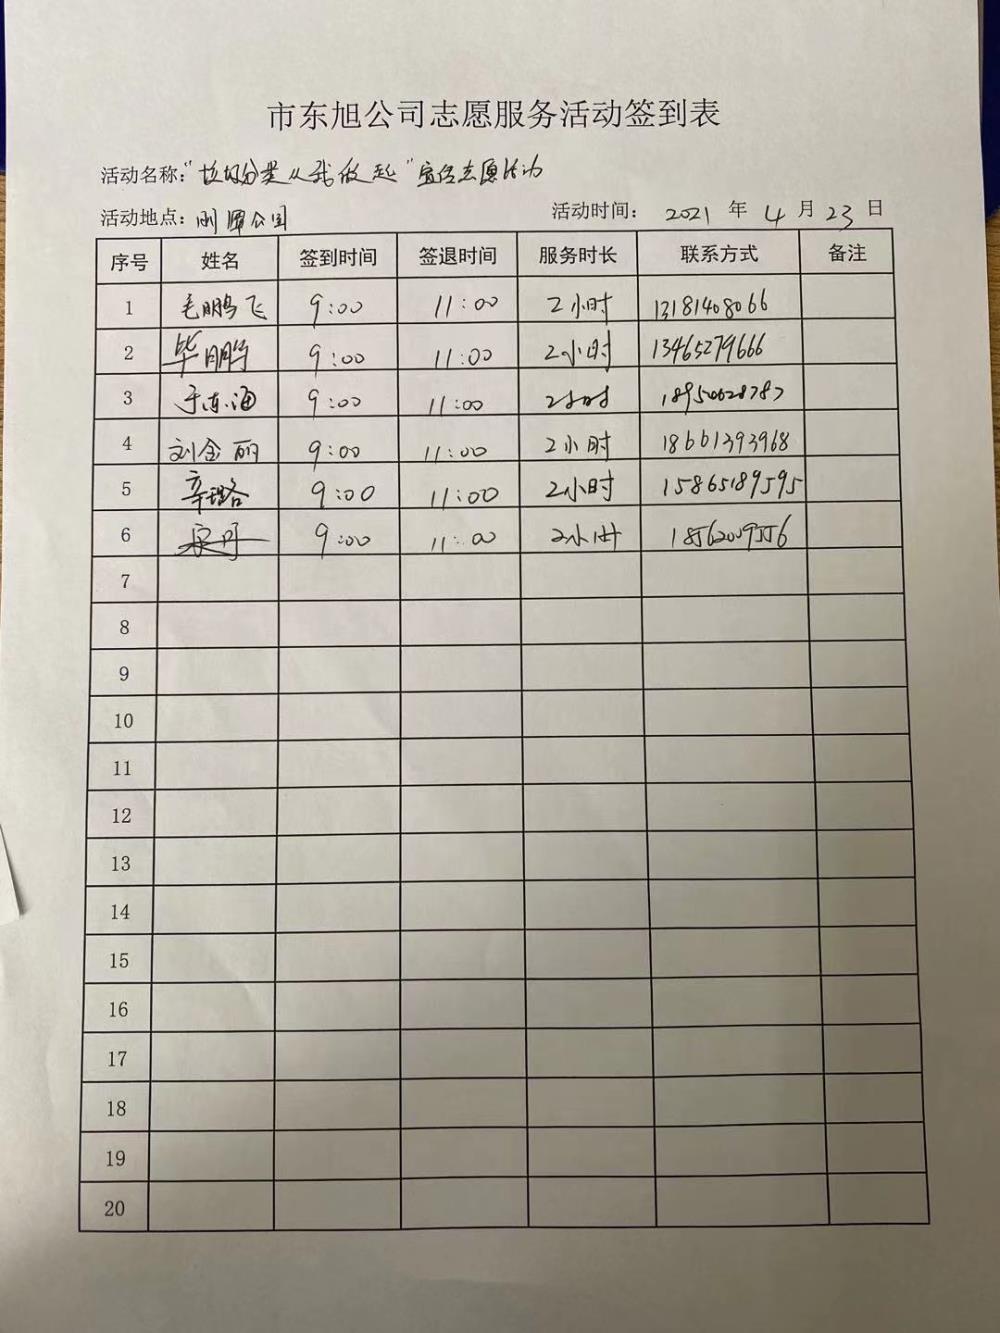 市东旭公司志愿服务活动签到表
活动名称:"垃圾分类从我做起"宣传志愿活动
活动地点: 公园 活动时间: 2021 年 4 月 23 日
序号 姓名 签到时间 签退时间 服务时长 联系方式 备注
1 毛鹏飞 9:00 11:00 2小时 13181408066
2 毕鹏 9:00 11:00 2小时 13465279666
3 于东海 9:00 11:00 2小时
4 刘金丽 9:00 11:00 2小时 18661393968
5 辛璐 9:00 11:00 2小时 15865189595
6 9:00 11:00 2小时 18562009556
7
8
9
10
11
12
13
14
15
16
17
18
19
20